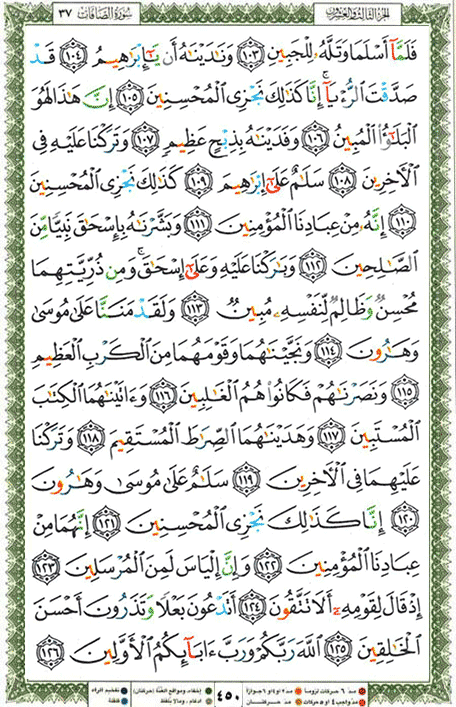 الجزء الثالث والعشرون
سورة الصافات ٣٧
فَلَمَّآ أَسْلَمَا وَتَلَّهُۥ لِلْجَبِينِ ١٠٣ وَنَٰدَيْنَٰهُ أَن يَٰٓإِبْرَٰهِيمُ ١٠٤ قَدْ
صَدَّقْتَ ٱلرُّءْيَآ ۚ إِنَّا كَذَٰلِكَ نَجْزِى ٱلْمُحْسِنِينَ ١٠٥ إِنَّ هَٰذَا لَهُوَ
ٱلْبَلَٰٓؤُا۟ ٱلْمُبِينُ ١٠٦ وَفَدَيْنَٰهُ بِذِبْحٍ عَظِيمٍ ١٠٧ وَتَرَكْنَا عَلَيْهِ فِى
ٱلْءَاخِرِينَ ١٠٨ سَلَٰمٌ عَلَىٰٓ إِبْرَٰهِيمَ ١٠٩ كَذَٰلِكَ نَجْزِى ٱلْمُحْسِنِينَ
١١٠ إِنَّهُۥ مِنْ عِبَادِنَا ٱلْمُؤْمِنِينَ ١١١ وَبَشَّرْنَٰهُ بِإِسْحَٰقَ نَبِيًّا مِّنَ
ٱلصَّٰلِحِينَ ١١٢ وَبَٰرَكْنَا عَلَيْهِ وَعَلَىٰٓ إِسْحَٰقَ ۚ وَمِن ذُرِّيَّتِهِمَا
مُحْسِنٌ وَظَالِمٌ لِّنَفْسِهِۦ مُبِينٌ ١١٣ وَلَقَدْ مَنَنَّا عَلَىٰ مُوسَىٰ
وَهَٰرُونَ ١١٤ وَنَجَّيْنَٰهُمَا وَقَوْمَهُمَا مِنَ ٱلْكَرْبِ ٱلْعَظِيمِ
١١٥ وَنَصَرْنَٰهُمْ فَكَانُوا۟ هُمُ ٱلْغَٰلِبِينَ ١١٦ وَءَاتَيْنَٰهُمَا ٱلْكِتَٰبَ
ٱلْمُسْتَبِينَ ١١٧ وَهَدَيْنَٰهُمَا ٱلصِّرَٰطَ ٱلْمُسْتَقِيمَ ١١٨ وَتَرَكْنَا
عَلَيْهِمَا فِى ٱلْءَاخِرِينَ ١١٩ سَلَٰمٌ عَلَىٰ مُوسَىٰ وَهَٰرُونَ
١٢٠ إِنَّا كَذَٰلِكَ نَجْزِى ٱلْمُحْسِنِينَ ١٢١ إِنَّهُمَا مِنْ
عِبَادِنَا ٱلْمُؤْمِنِينَ ١٢٢ وَإِنَّ إِلْيَاسَ لَمِنَ ٱلْمُرْسَلِينَ ١٢٣
إِذْ قَالَ لِقَوْمِهِۦٓ أَلَا تَتَّقُونَ ١٢٤ أَتَدْعُونَ بَعْلًا وَتَذَرُونَ أَحْسَنَ
ٱلْخَٰلِقِينَ ١٢٥ ٱللَّهَ رَبَّكُمْ وَرَبَّ ءَابَآئِكُمُ ٱلْأَوَّلِينَ ١٢٦
مد ٦ حركات لزوماً مد ٢ أو ٤ أو ٦ جوازاً
مد واجب ٤ أو ٥ حركات مد حركتان
٤٥٠
إخفاء، ومواقع الغنة (حركتان) تفخيم الراء
إدغام، وما لا يلفظ قلقلة